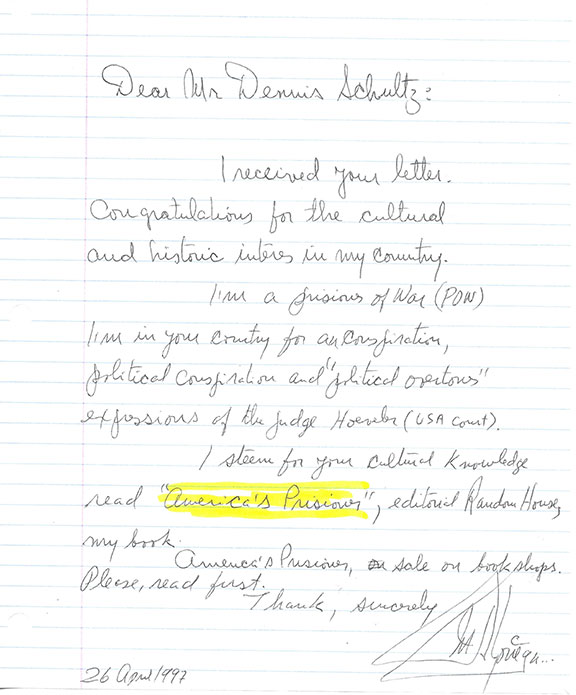 Dear Mr Dennis Schultz:
I received your letter.
Congratulations for the cultural
and historic interes in my country.
I'm a prisioner of War (POW)
I'm in your country for an Conspiration,
political conspiration and "political overtones"
expressions of the judge Hoeveler (USA court).
I steem for your cultural Knowledge
read "America's Prisioner", editorial Random House,
my book.
America's Prisioner, on sale on bookshops.
Please, read first.
Thank, sincerely
26 April 1997